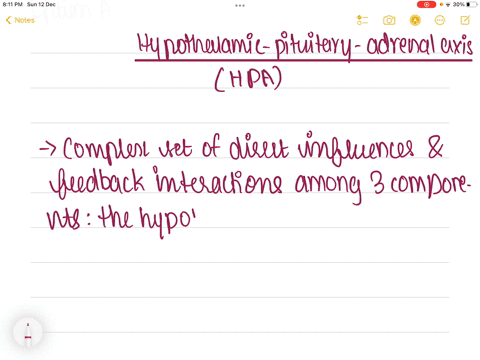 8:11 PM Sun 12 Dec
30%
Notes
Hypothalamic-pituitary-adrenal axis
(HPA)
→ Complex set of direct influences &
feedback interactions among 3 compone-
nts: the hypo